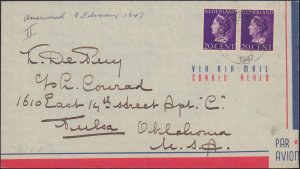 Answered 9 February 1947
II
NEDERLAND NEDERLAND
20 CENT 20 CENT
1947
VIA AIR MAIL
CORREO AEREO
K. De Puy
c/o R. Conrad
1610 East 14th street Apt. "C"
Tulsa Oklahoma
U.S.A.
PAR
AVION